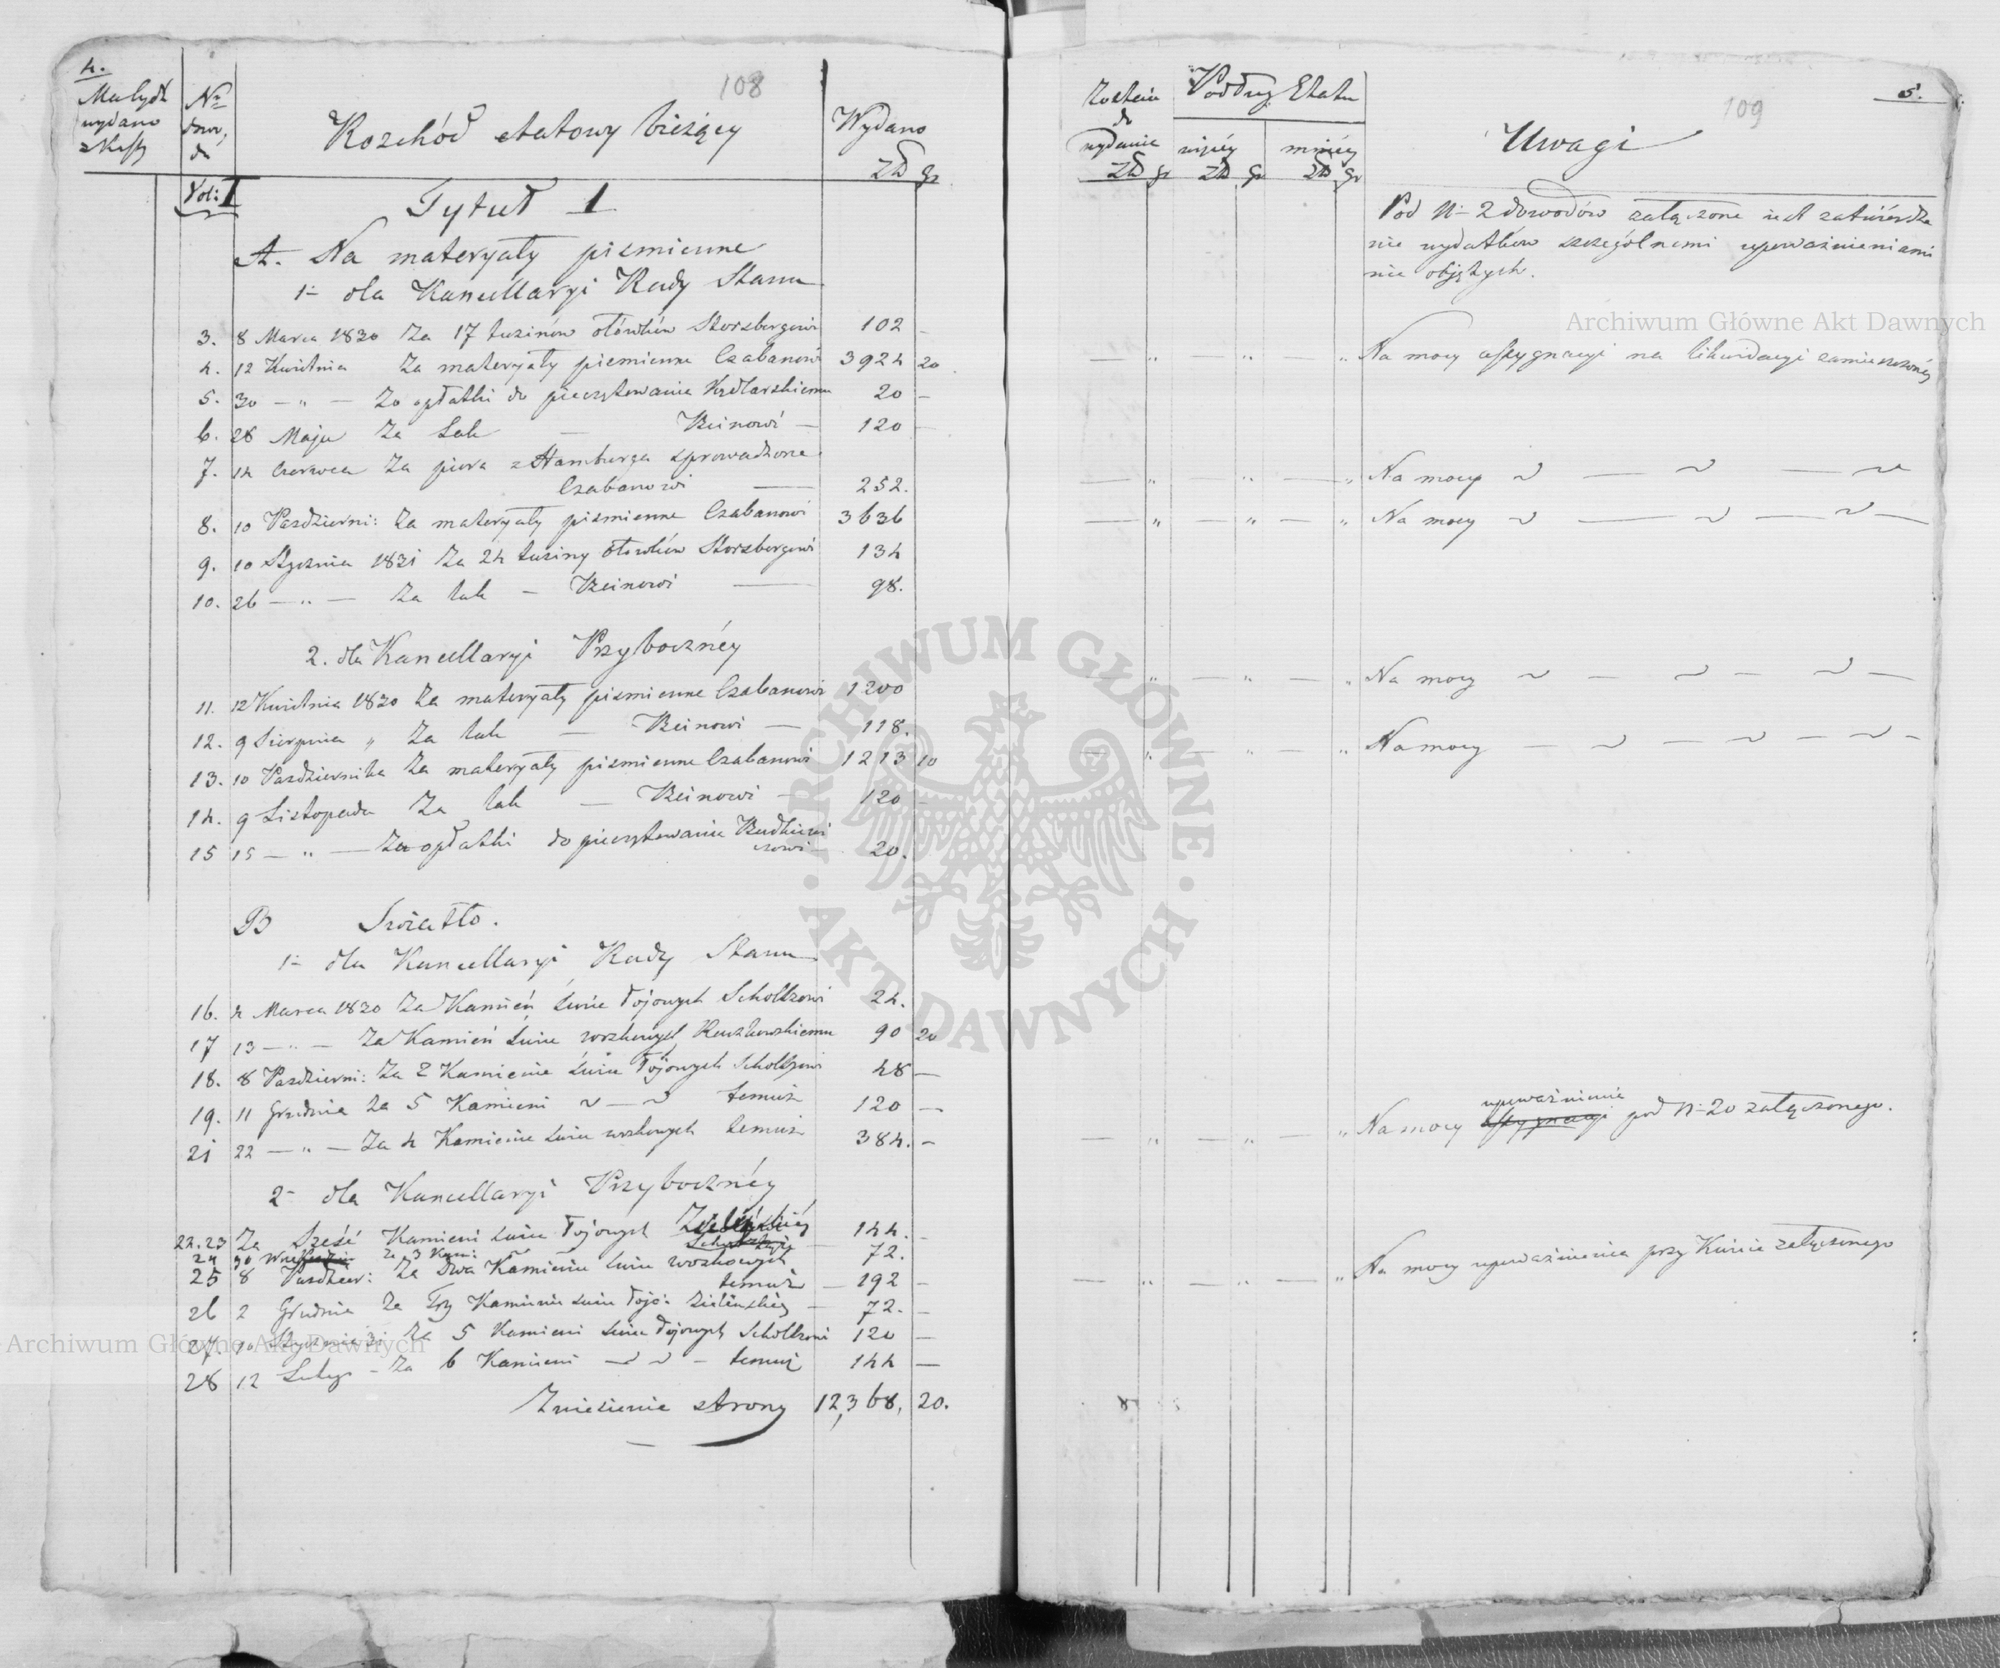 4.
108
Ma być
wydano
z Kassy
Nr
dowo,
du
Rozchód etatowy bieżący
Wydano
Zł gr
Vol: I
Tytuł 1
A. Na materyały piśmienne
1- dla Kancellaryi Rady Stanu
3. 8 Marca 1830 Za 17 tuzinów ołówków Storzbergowi 102 —
4. 12 Kwietnia Za materyały piśmienne Czabanowi 3924 20
5. 30 — „ — Za opłatki do pieczętowania Kędlarskiemu 20 —
6. 28 Maja Za Lak — Beinowi — 120 —
7. 14 Czerwca Za pióra z Hamburga sprowadzone
Czabanowi — 252.
8. 10 Październi: Za materyały piśmienne Czabanowi 3636
9. 10 Stycznia 1831 Za 24 tuziny ołówków Storzbergowi 134
10. 26 — „ — Za lak — Beinowi — 98.
2. dla Kancellaryi Przybocznéy
11. 12 Kwietnia 1830 Za materyały piśmienne Czabanowi 1200
12. 9 Sierpnia „ Za lak — Beinowi — 118.
13. 10 Października Za materyały piśmienne Czabanowi 1213 10
14. 9 Listopada Za lak — Beinowi — 120 —
15 15 — „ — Za opłatki do pieczętowania
20.
B Swiatło.
1- dla Kancellaryi Rady Stanu
16. 4 Marca 1830 Za Kamień świc łojowych Scholtzowi 24.
17 13 — „ — Za Kamień świc woskowych Ruszkowskiemu 90 20
18. 8 Październi: Za 2 Kamienie świc łojowych Scholtzowi 48 —
19. 11 Grudnia Za 5 Kamieni ~ — ~ temuż 120 —
21 22 — „ — Za 4 Kamienie świc woskowych temuż 384. —
2- dla Kancellaryi Przybocznéy
22.23 Za Sześć Kamieni świc łojowych Zielińskiéy 144. —
24 30 Września za 3 Kam: 72.
25 8 Paździer: Za Dwa Kamienie świc woskowych
temuż — 192 —
26 2 Grudnia Za Trzy Kamienie świc łojo: Zielińskiéy — 72. —
27. 10 Stycznia 31 Za 5 Kamieni świc łojowych Scholtzowi 120 —
28 12 Lutego — Za 6 Kamieni — ~ ~ — temuż 144 —
Zniesienie strony 12,368, 20.
5.
109
Zostaie
do
wydania
Zł gr
Podług Etatu
więcéy
Zł gr
mniéy
Zł gr
Uwagi
Pod N- 2 dowodów załączone iest zatwierdze
nie wydatków szczególnemi upoważnieniami
nie objętych.
— „ — „ — „ Na mocy assygnacyi na likwidacyi zamieszczonéy
— „ — „ — „ Na mocy ~ — ~ — ~
— „ — „ — „ Na mocy ~ — ~ — ~ —
— „ — „ — „ Na mocy ~ — ~ — ~ —
— „ — „ — „ Na mocy — ~ — ~ — ~ —
upoważnienia
— „ — „ — „ Na mocy assygnacyi pod N- 20 załączonego.
— „ — „ — „ Na mocy upoważnienia przy Kwicie załączonego
Archiwum Główne Akt Dawnych
ARCHIWUM GŁÓWNE · AKT DAWNYCH ·
Archiwum Główne Akt Dawnych